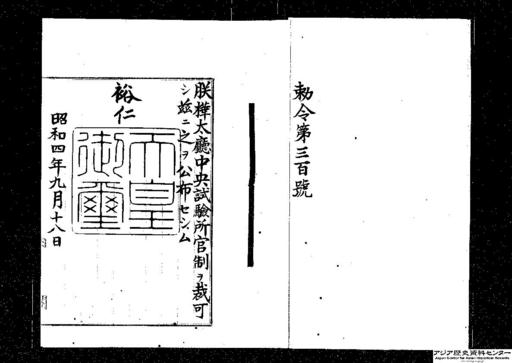 勅令第三百號
朕樺太廳中央試驗所官制ヲ裁可
シ玆ニ之ヲ公布セシム
裕仁
天皇御璽
昭和四年九月十八日
アジア歴史資料センター
Japan Center for Asian Historical Records